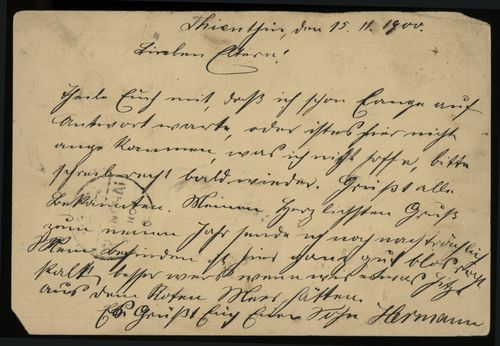 Thientsin, den 15. 11. 1900.
Lieben Eltern!
Theile Euch mit, daß ich schon Lange auf
Antwort warte, oder ist es hier nicht
ange kommen, was ich nicht hoffe, bitte
schreib recht bald wieder. Grüßt alle
Bekannten. Meinen Herzlichsten Gruß
zum neuen Jahr sende ich noch nachträglich
Mein befinden ist hier ganz gut blos recht
kalt besser wers wenn wir etwas Hitze
aus dem Roten Meer hätten.
Es Grüßt Euch Euer Sohn Hermann